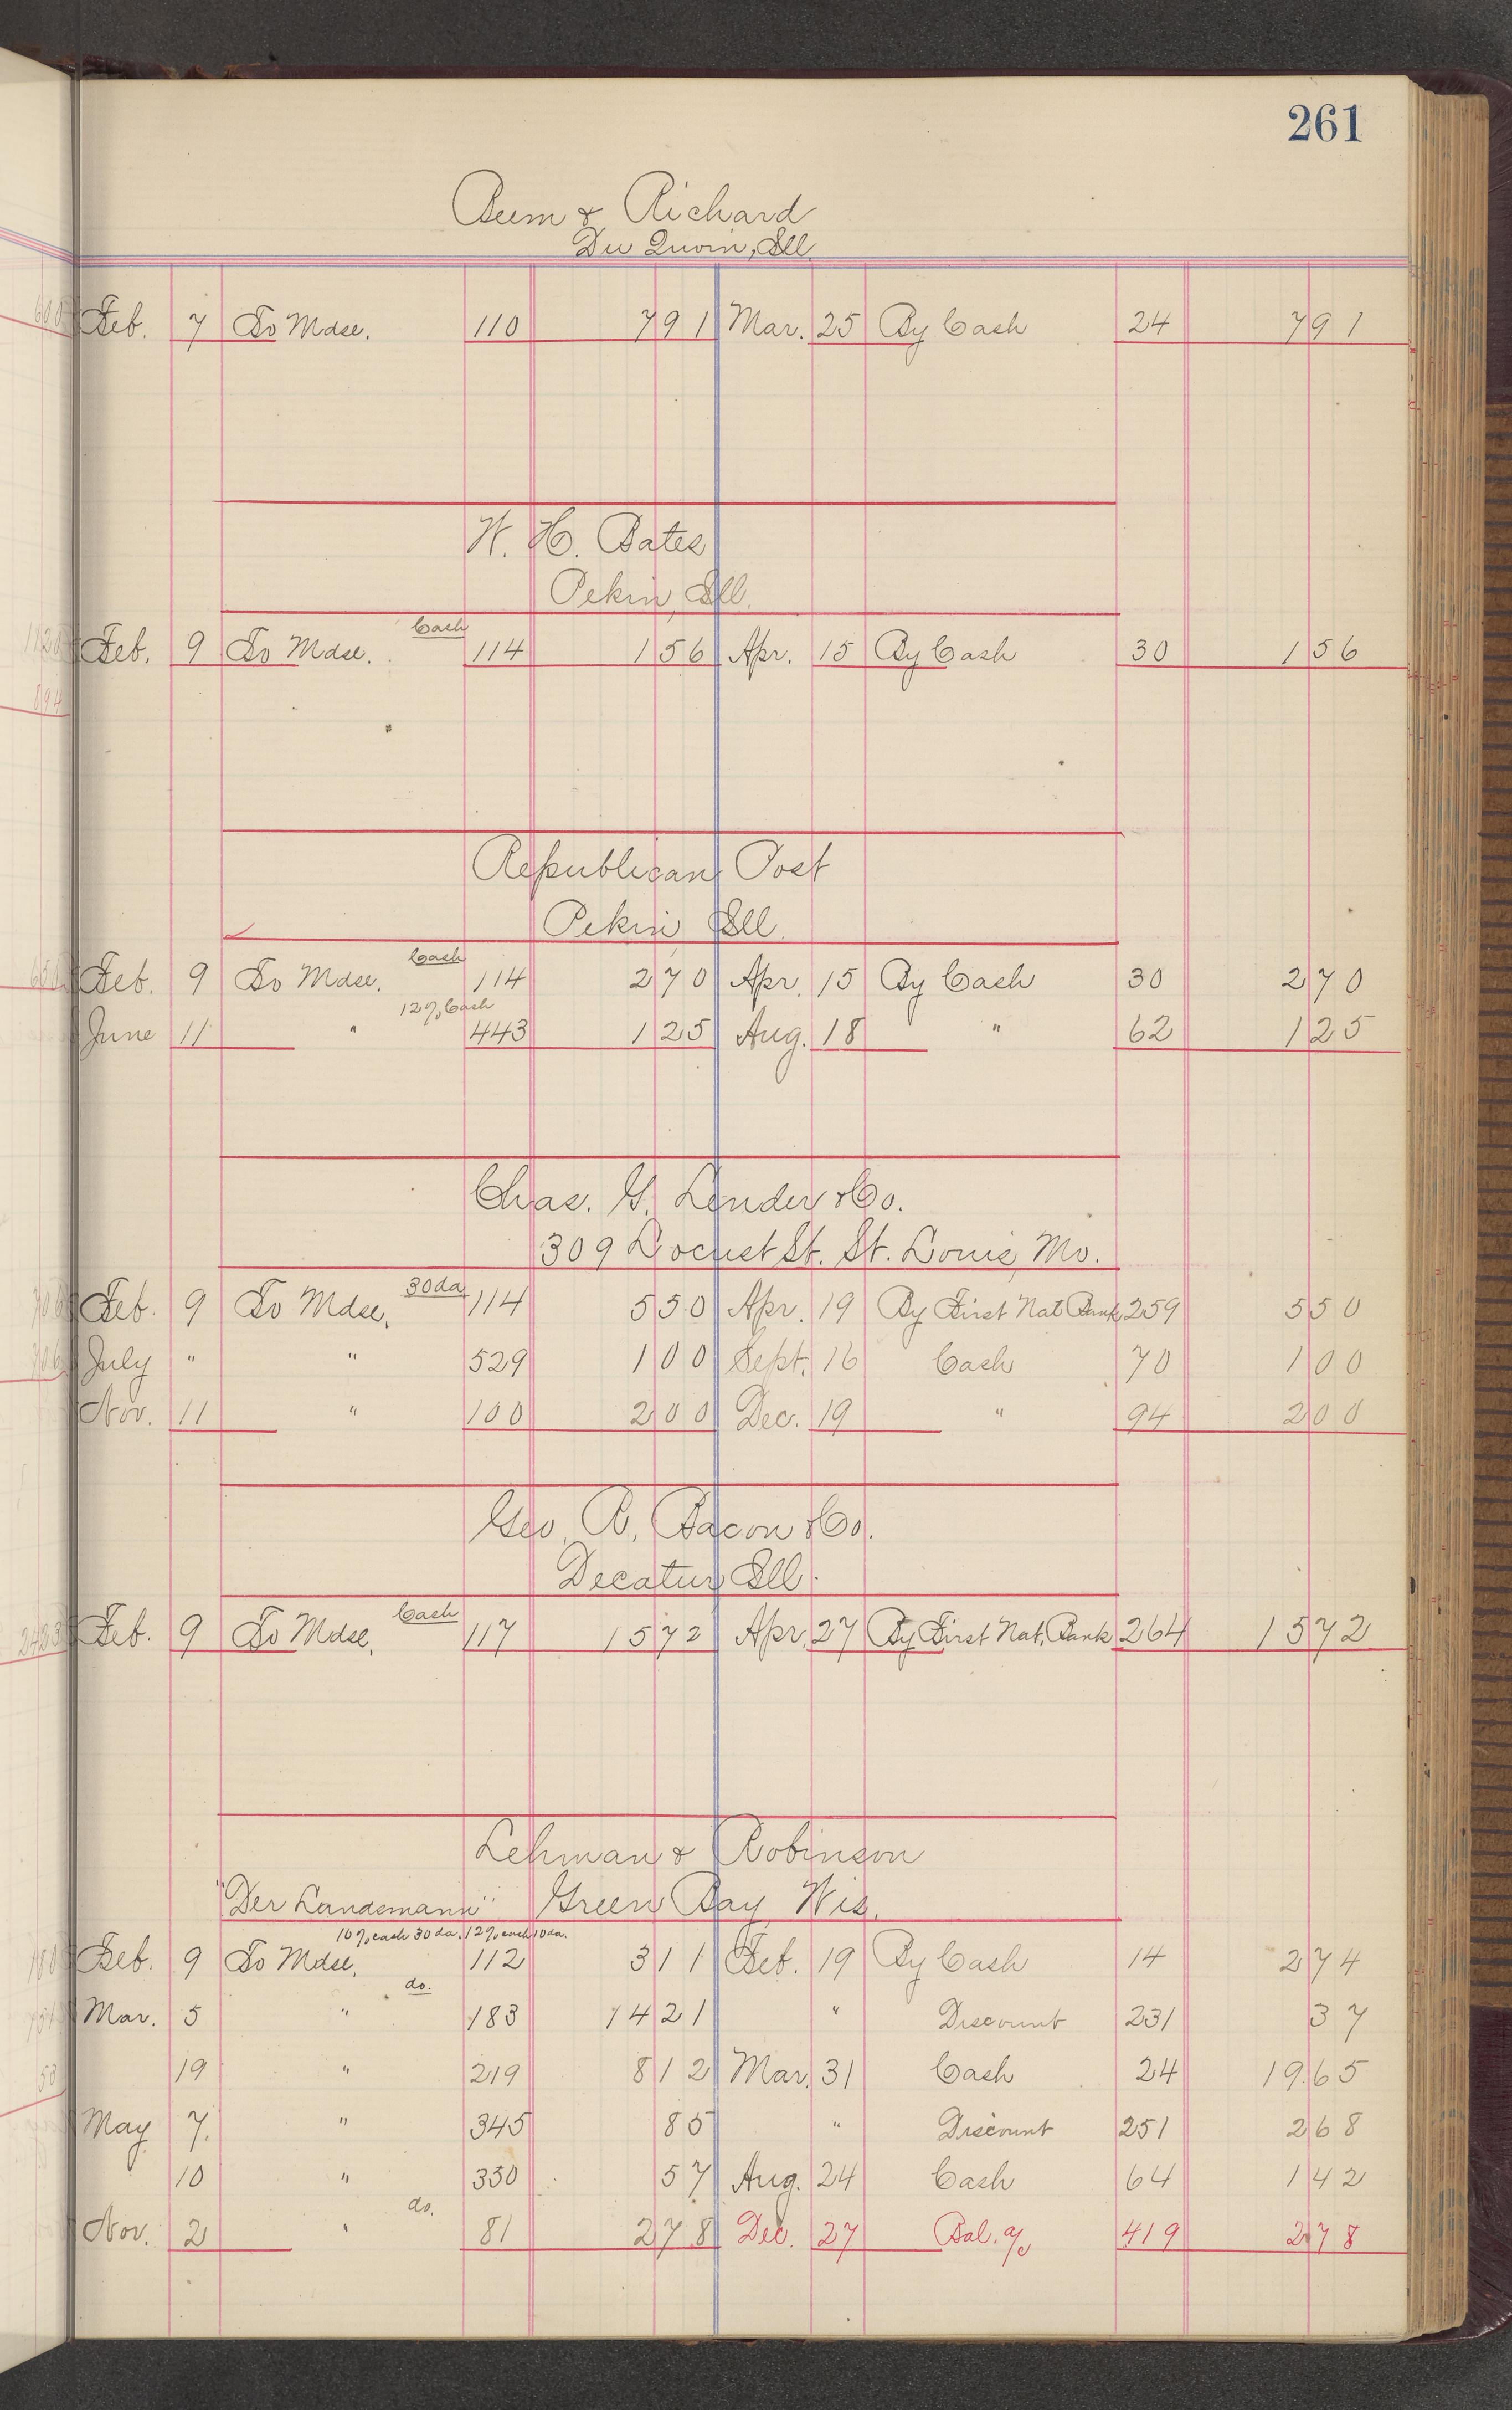 261
Beem & Richard
Du Quoin, Ill.
Feb. 7 To Mdse. 110 7 91 Mar. 25 By Cash 24 7 91
W. H. Bates
Pekin, Ill.
Cash
Feb. 9 To Mdse. 114 1 56 Apr. 15 By Cash 30 1 56
Republican Post
Pekin Ill.
Cash
Feb. 9 To Mdse. 114 2 70 Apr. 15 By Cash 30 2 70
12% Cash
June 11 " 443 1 25 Aug. 18 " 62 1 25
Chas. G. Lender & Co.
309 Locust St. St. Louis, Mo.
30 da
Feb. 9 To Mdse. 114 5 50 Apr. 19 By First Nat Bank 259 5 50
July " " 529 1 00 Sept. 16 Cash 70 1 00
Nov. 11 " 100 2 00 Dec. 19 " 94 2 00
Geo. R. Bacon & Co.
Decatur Ill.
Cash
Feb. 9 To Mdse. 117 15 72 Apr. 27 By First Nat. Bank 264 15 72
Lehman & Robinson
"Der Landsmann" Green Bay, Wis.
10% cash 30 da. 12% cash 10 da.
Feb. 9 To Mdse. 112 3 11 Feb. 19 By Cash 14 2 74
do.
Mar. 5 " 183 14 21 " Discount 231 37
19 " 219 8 12 Mar. 31 Cash 24 19 65
May 7. " 345 85 " Discount 251 2 68
10 " 350 57 Aug. 24 Cash 64 1 42
do.
Nov. 2 " 81 2 78 Dec. 27 Bal. a/c 419 2 78